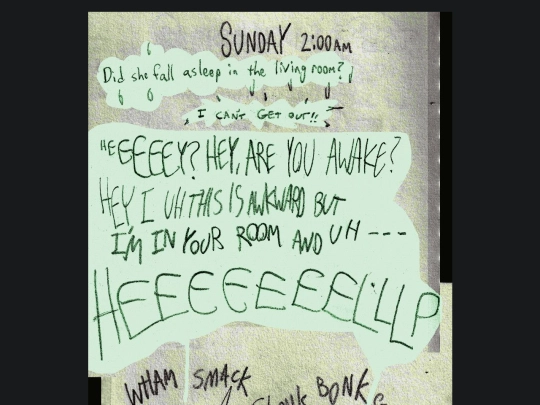 SUNDAY 2:00AM
Did she fall asleep in the living room?
I CAN'T GET OUT!!
HEEEEEY? HEY, ARE YOU AWAKE?
HEY I UH THIS IS AWKWARD BUT
I'M IN YOUR ROOM AND UH ---
HEEEEEEEELLLP
WHAM SMACK BONK